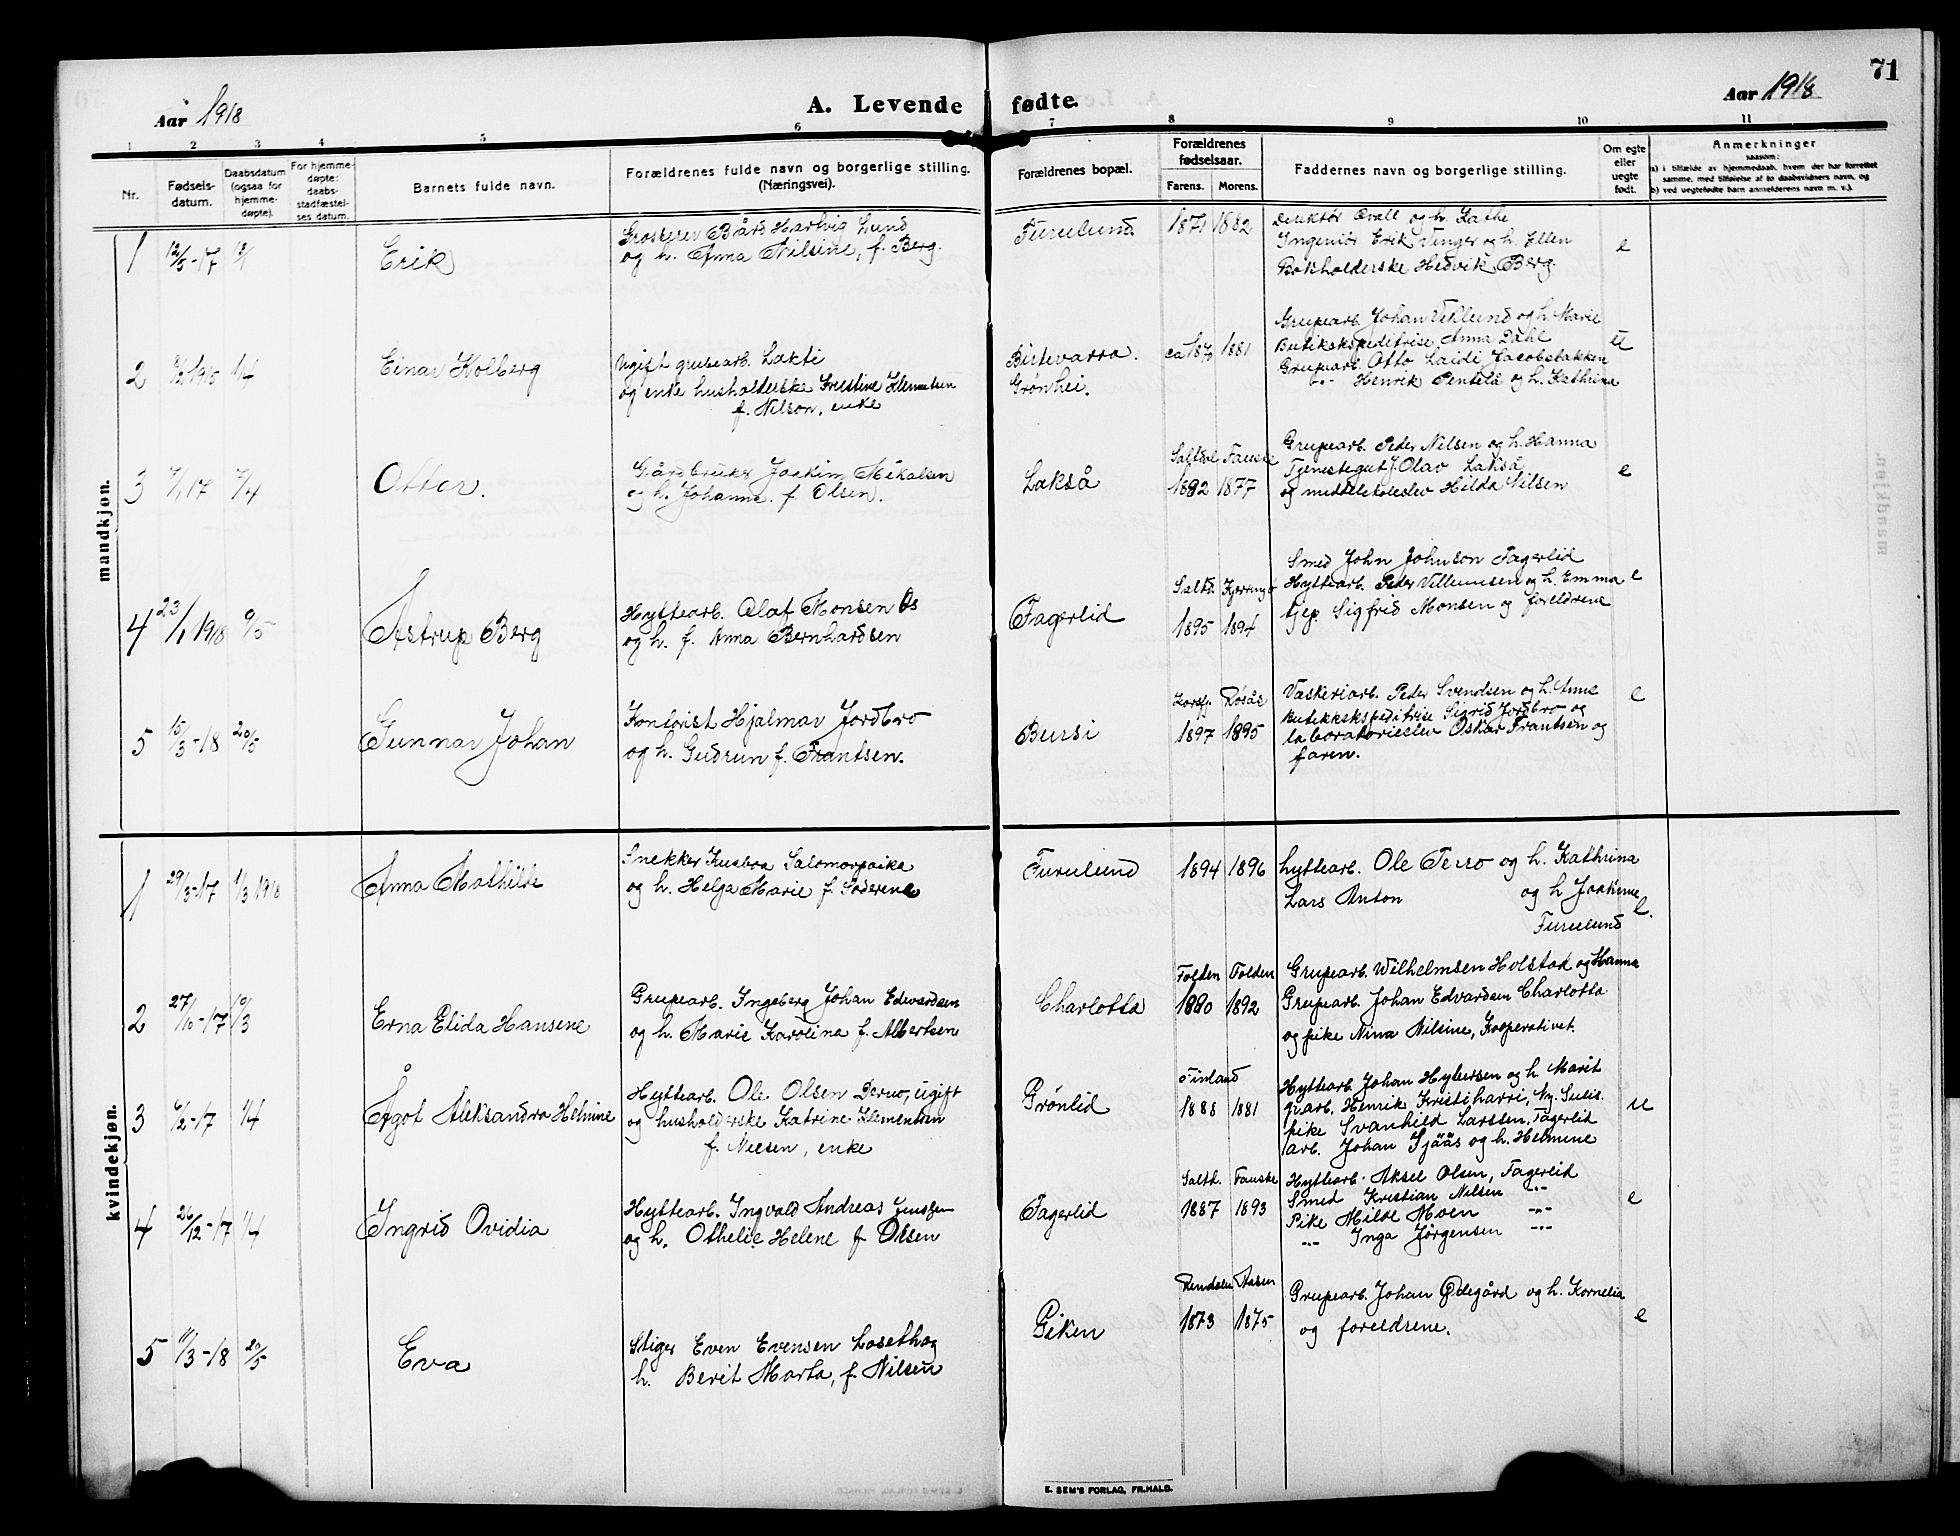 71
Aar 1918
A. Levende fødte.
Aar 1918
1 2 3 4 5 6 7 8 9 10 11
Nr.
Fødsels-
datum.
Daabsdatum
(ogsaa for
hjemme-
døpte).
For hjemme-
døpte:
daabs-
stadfæstel-
ses datum.
Barnets fulde navn.
Forældrenes fulde navn og borgerlige stilling.
(Næringsvei).
Forældrenes bopæl.
Forældrenes
fødselsaar.
Farens. Morens.
Faddernes navn og borgerlige stilling.
Om egte
eller
uegte
født.
Anmerkninger
saasom:
a) i tilfælde av hjemmedaab, hvem der har forrettet
samme, med tilføielse af to daabsvidners navn, og
b) ved uegtefødte barn anmelderens navn m. v.).
mandkjøn.
1 12/5-17
Erik
Grosserer Bård Hartvig Lund
og h. Anna Nilsine, f. Berg.
Furulund
1871 1882
Direktør Qvale og h. Kathe
Ingeniør Erik Unger og h. Ellen
Bokholderske Hedvik Berg.
e
2
Einar Kolberg
Ugift grubearb. Lakti
og enke husholderske Kristine Klemetsen
f. Nilson, enke
Birtevarra.
Grønhei.
ca 1870 1881
Grupearb. Johan Viklund og h. Marie
Butikekspeditrise Anna Dahl
Grupearb. Otto Laidi Jacobsbakken
-"- Henrik Pentilä og h. Kathrina
u
3 7/1 17 7/4
Otter.
Gårdbruker Joakim Mikalsen
og h. Johanne f. Olsen.
Lakså
Saltdal Fauske
1882 1877
Grupearb. Peder Nilsen og h. Hanna
Tjenestegut J. Olav Lakså
og middelskoleelev Hilda Nilsen
e
4 23/1 1918 9/5
Astrup Berg
Hyttearb. Olaf Monsen Os
og h. f. Anna Bernhardsen
Fagerlid
Saltd. Kjerringø
1895 1894
Smed John Johnson Fagerlid
Hyttearb. Peder Villumsen og h. Emma
Gep. Sigfrid Monsen og foreldrene
e
5 15/3-18 20/5
Gunnar Johan
Kontorist Hjalmar Jordbro
og h. Gudrun f. Frantsen.
Bursi
Røsås
1897 1895
Vaskeriarb. Peder Svendsen og h. Anne
Butikkekspeditrise Sigrid Jordbro og
laboratorieelev Oskar Frantsen og
faren.
e
kvindekjøn.
1 29/3-17 1/3 1918
Anna Mathilde
Snekker Kusbra Salomorpaika
og h. Helga Marie f. Soderene
Furulund
1894 1896
hyttearb. Ole Terro og h. Kathrina
Lars Anton og h Joakime
Furulund
e.
2 27/10-17 10/3
Erna Elida Hansene
Grupearb. Ingeberg Johan Edvardsen
og h. Marie Karolina f. Albertsen
Charlotta
Folden Folden
1890 1892
Grupearb. Wilhelmsen Holstad og Hanna
Grupearb. Johan Edvardsen Charlotta
og pike Nina Nilsine, Kooperativet.
3 6/2-17 1/4
Ågot Aleksandra Helmine
Hyttearb. Ole Olsen Dervo, ugift
og husholderske Katrine Klementsen
f. Nielsen, enke
Grønlid
Finland
1888 1881
Hyttearb. Johan Hybersen og h Marit
grarb. Henrik Kristiharri, Ny. Sulis.
pike Svanhild Larssen, Fagerlid
arb. Johan Sjåås og h. Helmine
u
4 26/12-17 1/4
Ingrid Ovidia
Hyttearb. Ingvald Andreas Jenssen
og h. Othelie Helene f Olsen
Fagerlid
Saltd. Fauske
1887 1893
Hyttearb. Aksel Olsen, Fagerlid
Smed Kristian Nilsen -"-
Pike Milde Moen -"-
-"- Inga Jørgensen -"-
e
5 11/3-18 20/5
Eva
Stiger Even Evensen Losethog
h. Berit Marta, f. Nilsen
Giken
Rendalen Aasen
1873 1875
Grupearb. Johan Ødegård og h. Kornelia
og foreldrene.
e
E. SEM'S FORLAG, FR.HALD.